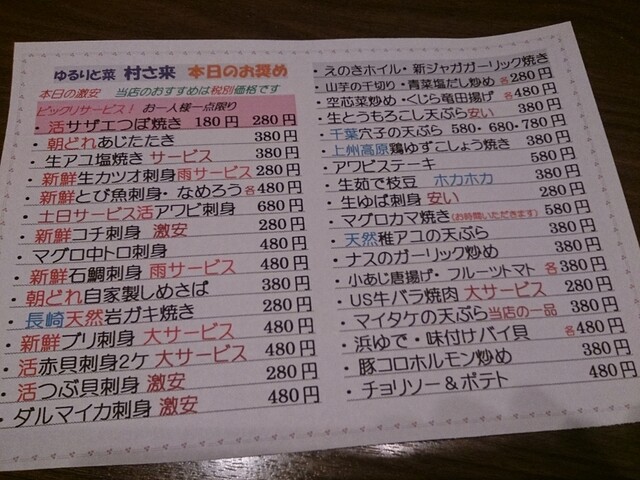 ゆるりと菜 村さ来 本日のお奨め
本日の激安 当店のおすすめは税別価格です
ビックリサービス! お一人様一点限り
・活サザエつぼ焼き 180円 280円
・朝どれあじたたき 380円
・生アユ塩焼き サービス 380円
・新鮮生カツオ刺身雨サービス 280円
・新鮮とび魚刺身・なめろう各480円
・土日サービス活アワビ刺身 680円
・新鮮コチ刺身 激安 280円
・マグロ中トロ刺身 480円
・新鮮石鯛刺身 雨サービス 480円
・朝どれ自家製しめさば 380円
・長崎天然岩ガキ焼き 280円
・新鮮ブリ刺身 大サービス 480円
・活赤貝刺身2ケ 大サービス 480円
・活つぶ貝刺身 激安 280円
・ダルマイカ刺身 激安 480円
・えのきホイル・新ジャガガーリック焼き
・山芋の千切り・青菜塩だし炒め 各280円
・空芯菜炒め・くじら竜田揚げ 各480円
・生とうもろこし天ぷら安い 380円
・千葉穴子の天ぷら 580・680・780円
・上州高原鶏ゆずこしょう焼き 380円
・アワビステーキ 580円
・生茹で枝豆 ホカホカ 380円
・生ゆば刺身 安い 280円
・マグロカマ焼き(お時間いただきます) 580円
・天然稚アユの天ぷら 380円
・ナスのガーリック炒め 380円
・小あじ唐揚げ・フルーツトマト 各380円
・US牛バラ焼肉 大サービス 280円
・マイタケの天ぷら当店の一品 380円
・浜ゆで・味付けバイ貝 各480円
・豚コロホルモン炒め 380円
・チョリソー＆ポテト 480円